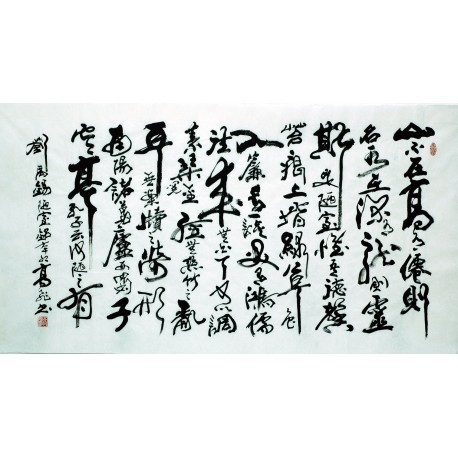 山不在高有僊則
名水不在深有龍則靈
斯是陋室惟吾德馨
苔痕上階綠草色
入簾青談笑有鴻儒
往來無白丁可以調
素琴閱金經無絲竹之亂
耳無案牘之勞形
南陽諸葛廬西蜀子
雲亭孔子云何陋之有
劉禹錫陋室銘